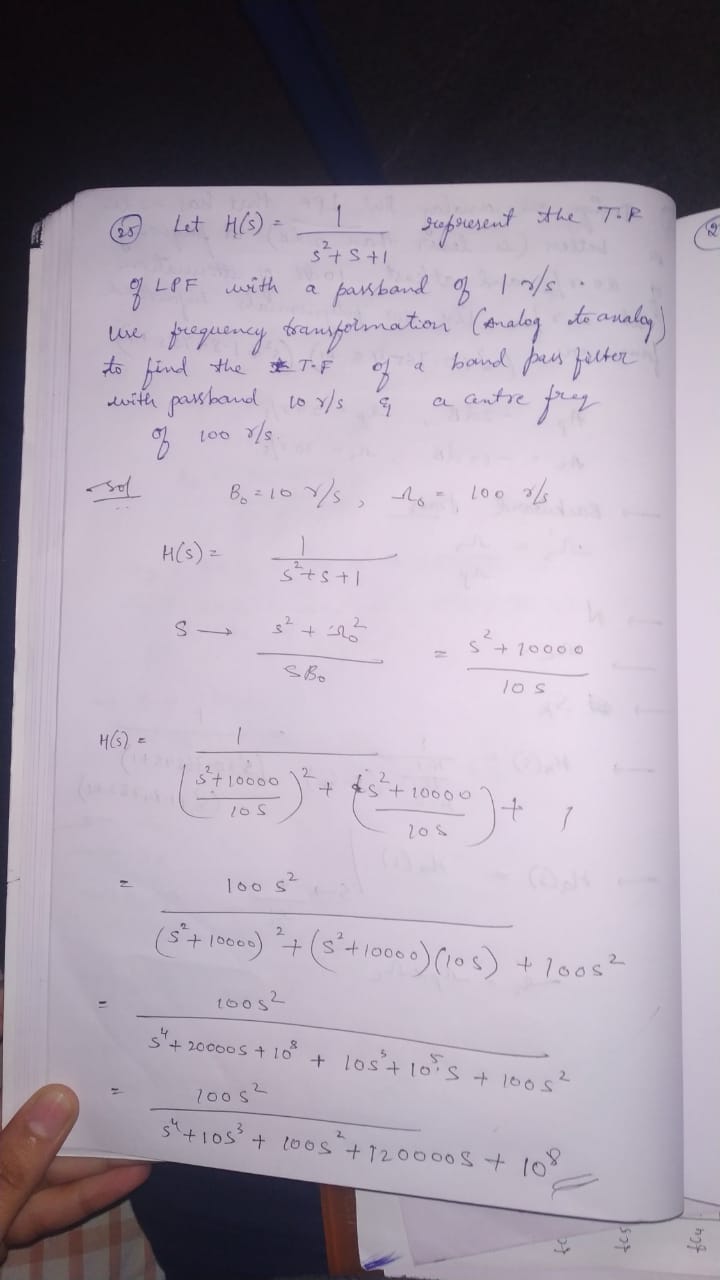 (25) Let H(s) = 1 / (s² + s + 1) represent the T.F
of LPF with a passband of 1 r/s.
use frequency transformation (Analog to analog)
to find the T-F of a band pass filter
with passband 10 r/s & a centre freq
of 100 r/s.
Sol B₀ = 10 r/s, Ω₀ = 100 r/s
H(s) = 1 / (s² + s + 1)
S → (s² + Ω₀²) / (SB₀) = (s² + 10000) / (10s)
H(s) = 1 / (((s² + 10000) / (10s))² + ((s² + 10000) / (10s)) + 1)
= 100s² / ((s² + 10000)² + (s² + 10000)(10s) + 100s²)
= 100s² / (s⁴ + 20000s + 10⁸ + 10s³ + 10⁵s + 100s²)
= 100s² / (s⁴ + 10s³ + 100s² + 120000s + 10⁸)
(2